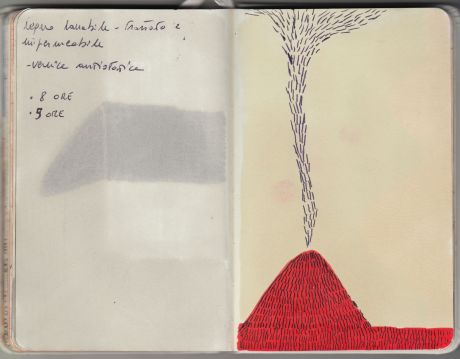 legno lavabile - trattato e
impermeabile
- vernice antistatica
• 8 ORE
• 9 ORE